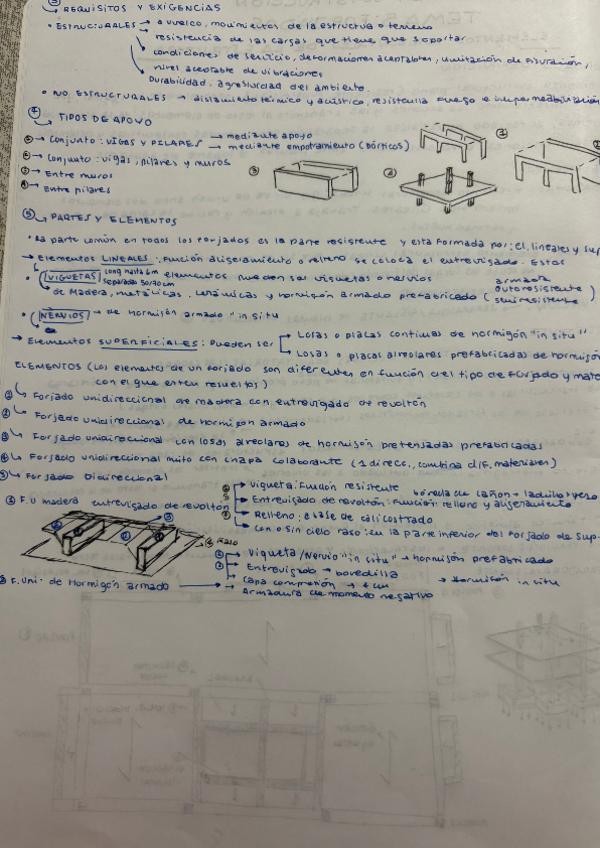 ③ REQUISITOS Y EXIGENCIAS
• ESTRUCTURALES → a vuelco, movimientos de la estructura o terreno
resistencia de las cargas que tiene que soportar
condiciones de servicio, deformaciones aceptables, limitación de fisuración,
nivel aceptable de vibraciones
Durabilidad. agresividad del ambiente.
• NO ESTRUCTURALES → aislamiento térmico y acústico, resistencia fuego e impermeabilización
④ TIPOS DE APOYO
① → Conjunto: VIGAS Y PILARES → mediante apoyo
→ mediante empotramiento (pórticos)
② → Conjunto: vigas, pilares y muros
③ → Entre muros
④ → Entre pilares
⑤ PARTES Y ELEMENTOS
• La parte común en todos los forjados es la parte resistente y esta formada por: el. lineales y sup
→ Elementos LINEALES: función aligeramiento o relleno se coloca el entrevigado. Estos
• VIGUETAS long hasta 6m separadas 50/70cm elementos pueden ser viguetas o nervios
de Madera, metálicas, cerámicas y hormigón armado prefabricado (armada autoresistente semiresistente)
• NERVIOS → de hormigón armado "in situ"
→ Elementos SUPERFICIALES: pueden ser → Losas o placas continuas de hormigón "in situ"
→ Losas o placas alveolares prefabricadas de hormigón
ELEMENTOS (Los elementos de un forjado son diferentes en función del tipo de forjado y mate
con el que esten resueltos)
① Forjado unidireccional de madera con entrevigado de revoltón
② Forjado unidireccional de hormigón armado
③ Forjado unidireccional con losas alveolares de hormigón pretensadas prefabricadas
④ Forjado unidireccional mixto con chapa colaborante (1 direcc., combina dif. materiales)
⑤ Forjado Bidireccional
① F. U madera entrevigado de revoltón
Vigueta: Función resistente
Entrevigado de revoltón: función: relleno y aligeramiento
bóveda de cañon → ladrillo + yeso
Relleno: a base de cal
Con o Sin cielo raso: en la parte inferior del forjado de sup.
RASO
② F. Uni. de Hormigón armado
Vigueta/Nervio "in situ" → hormigón prefabricado
Entrevigado → bovedilla
Capa compresión → 4cm → Hormigón in situ
Armadura de momento negativo